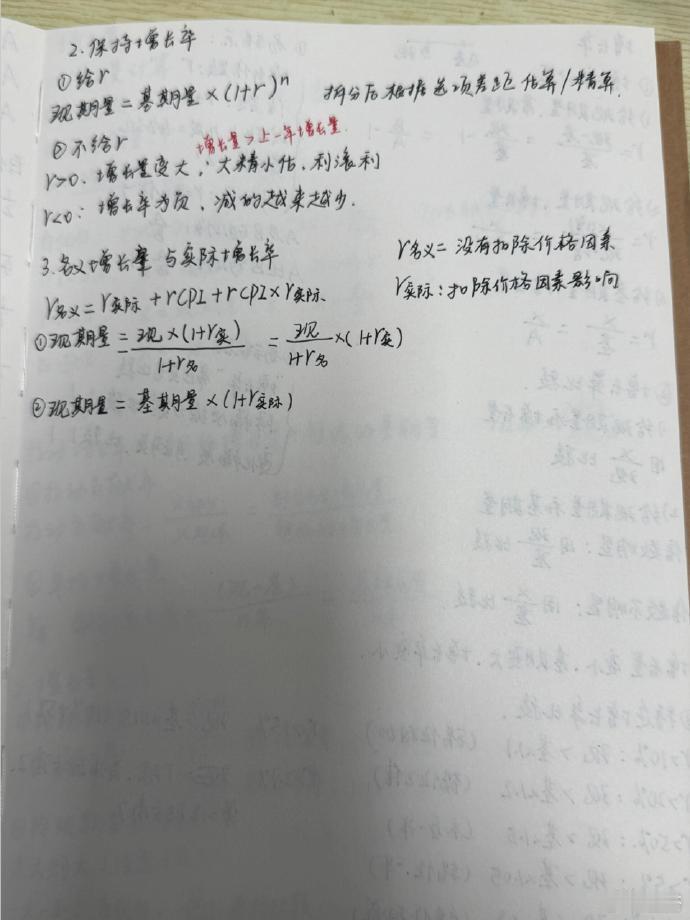 2.保持增长率
①给r
现期量=基期量×(1+r)^n 拆分后根据选项差距估算/精算.
②不给r 增长量>上一年增长量.
r>0.增长量变大,大精小估,利滚利
r<0:增长率为负,减的越来越少.
3.名义增长率与实际增长率
r名义=没有扣除价格因素
r名义=r实际+rCPI+rCPI×r实际.
r实际:扣除价格因素影响
①现期量=现×(1+r实)/1+r名=现/1+r名×(1+r实)
②现期量=基期量×(1+r实际)